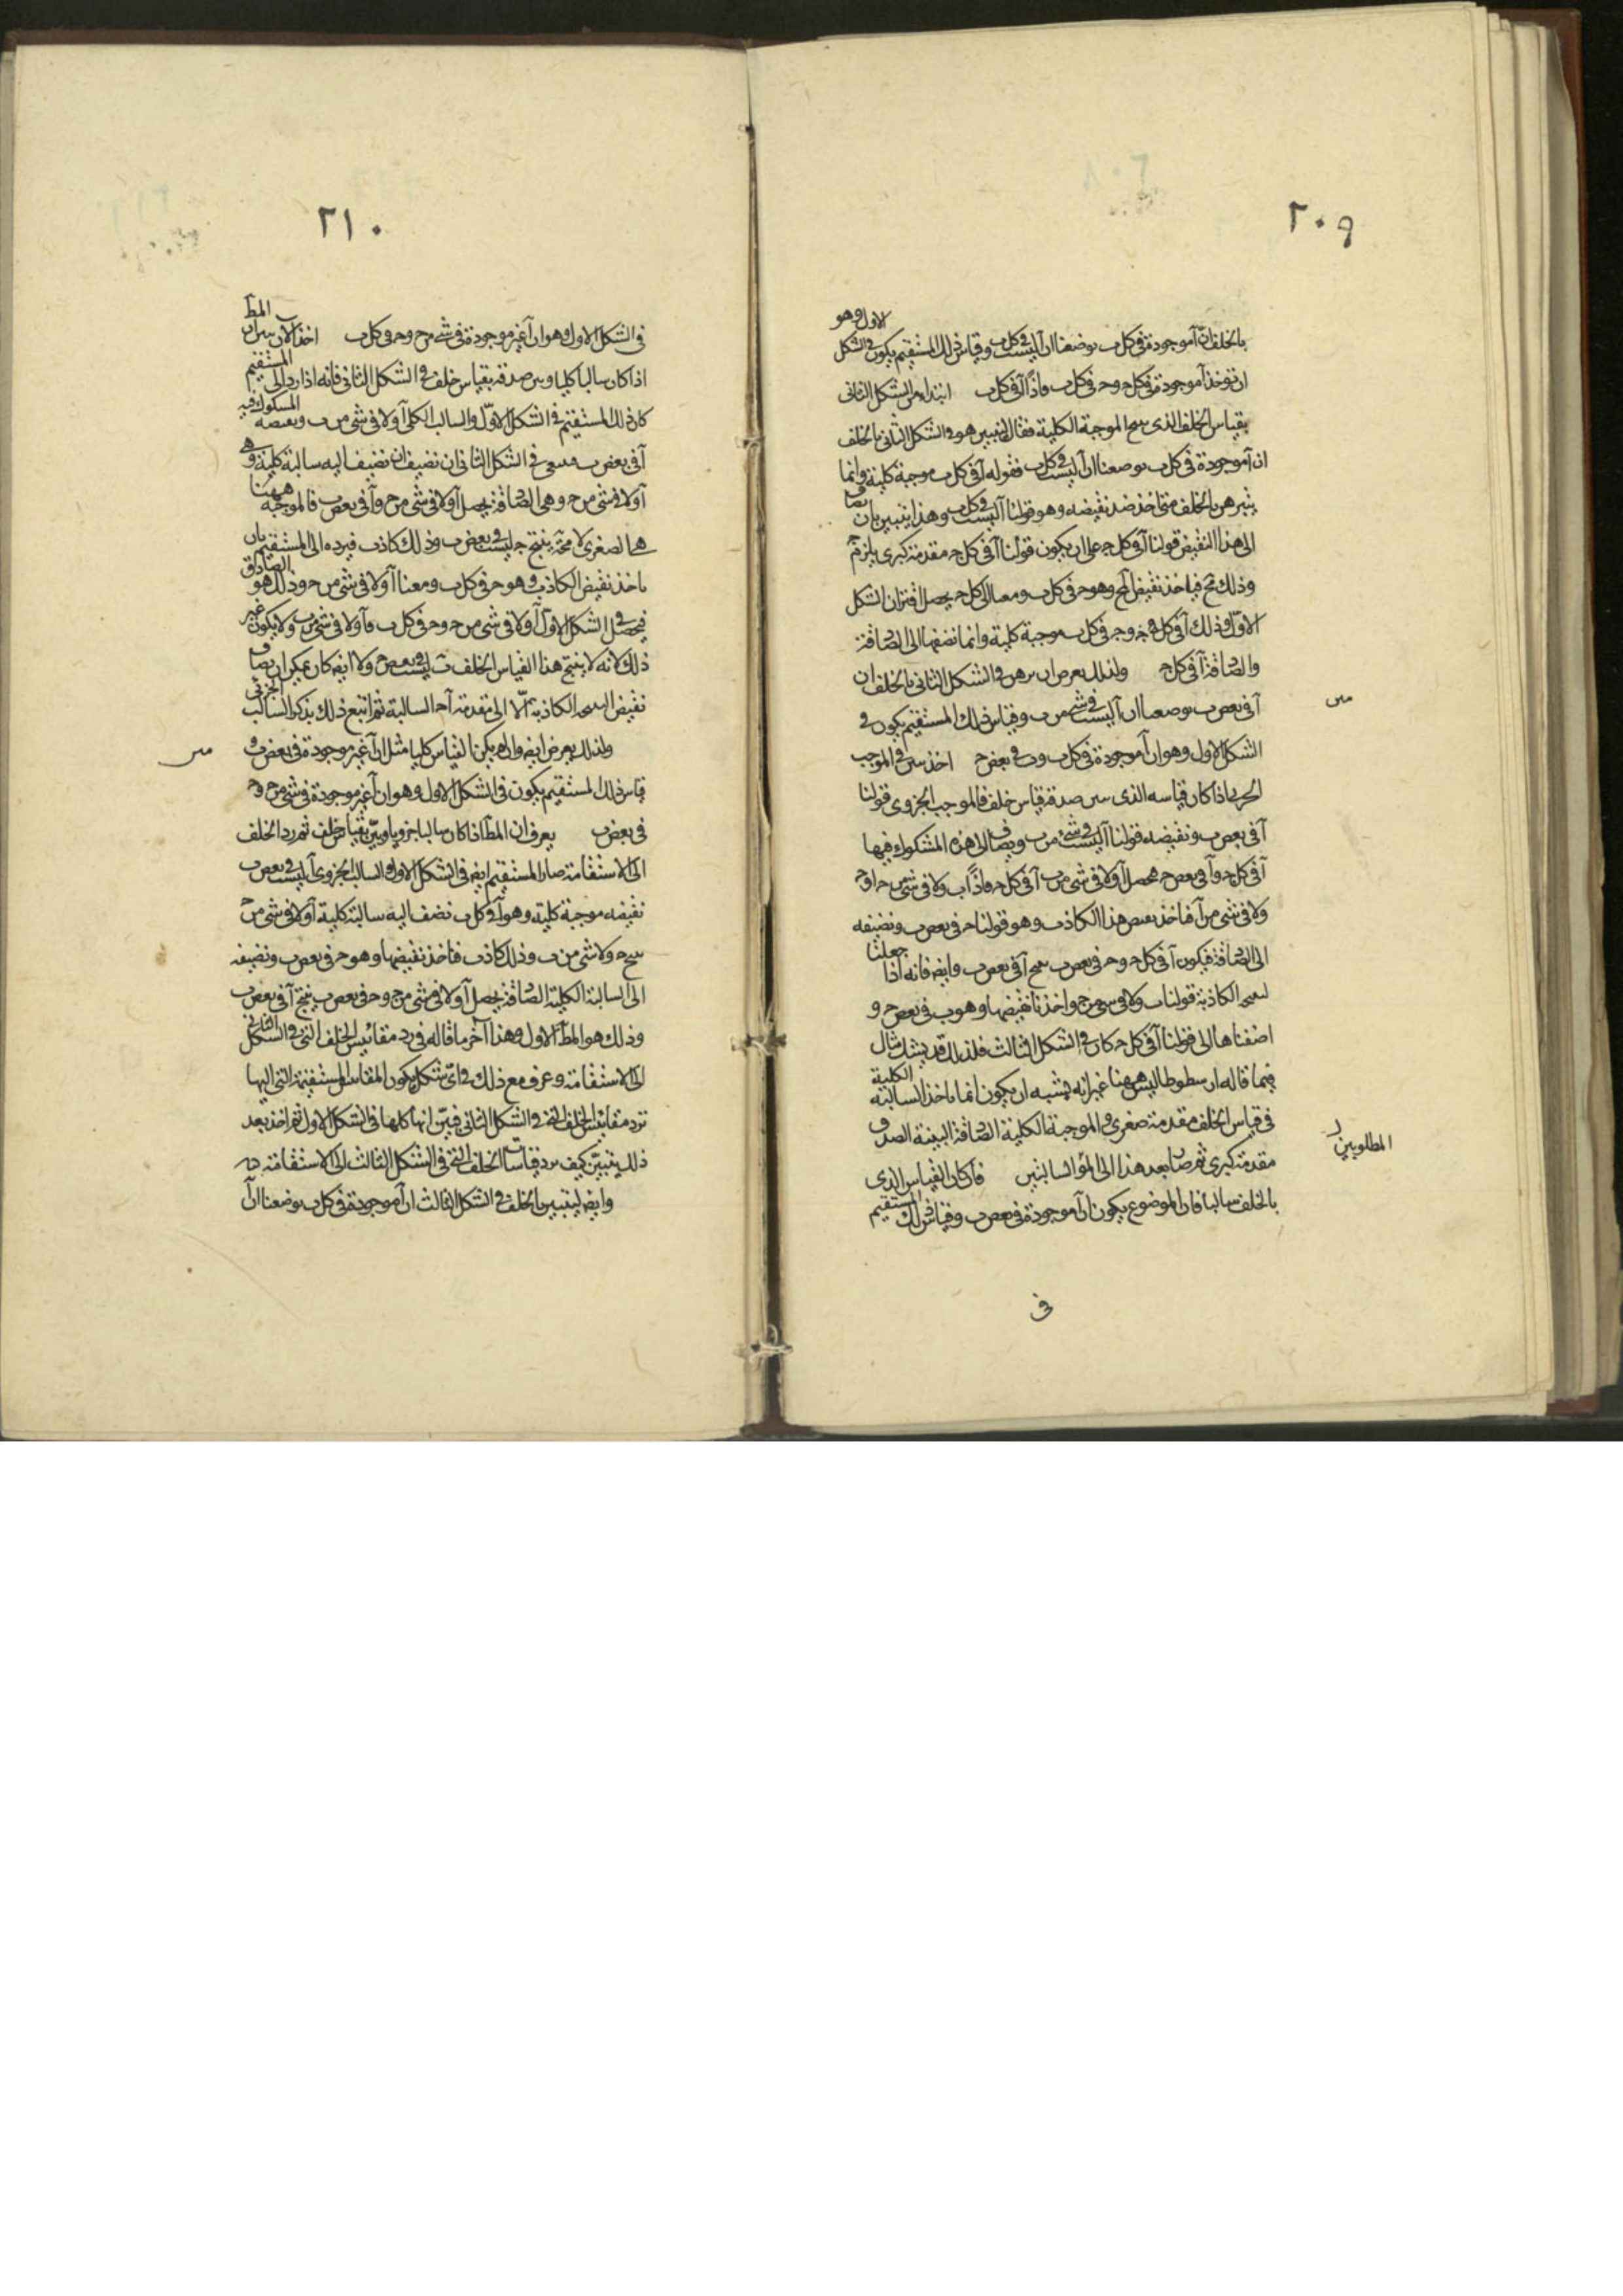 ٢٠٩
بالخلف ان آ موجودة فى كل ب بوضعنا ان آ ليست فى كل ب وقياس ذلك المستقيم يكون فى الشكل الاول وهو
ان توخذ آ موجودة فى كل ح وح فى كل ب فاذًا آ فى كل ب ابتدا من الشكل الثانى
بقياس الخلف الذى ينتج الموجبة الكلية فقال لنتبين هو فى الشكل الثانى بالخلف
ان آ موجودة فى كل ب بوضعنا ان آ ليست فى كل ب فقوله آ فى كل ب موجبة كلية وانما
يتبرهن بالخلف متى اخذ ضد نقيضه وهو قولنا آ ليست فى كل ب وهذا يتبين بان يضاف
الى هذا النقيض قولنا آ فى كل ح على ان يكون قولنا آ فى كل ح مقدمة كبرى يلزم
وذلك مح فياخذ نقيض وهو ح فى كل ب ومعنا ان كل ح يحصل اقتران الشكل
الاول وذلك آ فى كل ح وح فى كل ب موجبة كلية وانما نضفها الى الصادقة
والصادقة آ فى كل ح ولذلك يعرض ان يبرهن فى الشكل الثانى بالخلف ان
آ فى بعض ب بوضعنا ان آ ليست فى شى من ب وقياس ذلك المستقيم يكون فى
مں
الشكل الاول وهو ان آ موجودة فى كل ب وب فى بعض ح اخذ يبين فى الموجب
اذا كان قياسه الذى يبين صدقه قياس خلف فالموجب الجزوى قولنا
آ فى بعض ب ونقيضه قولنا آ ليست فى شئ من ب ويضاف الى هذه المشكوك فيها
آ فى كل ح وآ فى بعض ح يحصل آ ولا فى شى من ب آ فى كل ح فاذًا ب ولا فى شى من ح اوح
ولا فى شى من آ فناخذ نقيض هذا الكاذب وهو قولنا ح فى بعض ب ونضيفه
الى الصادقة فيكون آ فى كل ح وح فى بعض ب ينتج آ فى بعض ب وايضا فانه اذا جعلنا
الكاذبة قولنا ب ولا فى شى من ح واخذنا نقيضها وهو ب فى بعض ح و
اضفناها الى قولنا آ فى كل ح كان فى الشكل الثالث فلذلك قد يشك شاك
فيما قاله ارسطوطاليس ههنا غير انه يشبه ان يكون انما ياخذ السالبة الكلية
فى قياس الخلف مقدمة صغرى والموجبة الكلية الصادقة البينة الصدق
المطلوبين
مقدمة كبرى ثم صار بعد هذا الى السالبتين فان كان القياس الذى
بالخلف سالبا فان الموضوع يكون ان آ موجودة فى بعض ب وقياس ذلك المستقيم
فى
٢١٠
فى الشكل الاول وهو ان آ غير موجودة فى شى من ح وح فى كل ب اخذ الان يبين ان المط
اذا كان سالبا كليا وبين صدقه بقياس خلف فى الشكل الثانى فانه اذا رد الى المستقيم
كان ذلك المستقيم فى الشكل الاول والسالب الكلى آ ولا فى شى من ب ونقيضه المشكوك فيه
آ فى بعض ب فى الشكل الثانى ان نضيف اليه سالبة كلية وهى
آ ولا فى شى من ح وهى الصادقة يحصل آ ولا فى شى من ح وآ فى بعض ب فالموجبة ههنا
هى الصغرى لا محة ينتج ح ليست فى بعض ب وذلك كاذب فيرده الى المستقيم بان
ياخذ نقيض الكاذب وهو ح فى كل ب ومعنا آ ولا فى شى من ح وذلك هو الصادق
فيحصل فى الشكل الاول آ ولا فى شى من ح وح فى كل ب فآ ولا فى شى من ب ولا يكون غير
ذلك لانه لا ينتج هذا القياس الخلف ب ليست فى بعض ح ولا ايض كان يمكن ان يضاف
نقيض النتيجة الكاذبة الا الى مقدمة آح السالبة ثم اتبع ذلك بذكر السالب الجزئى
ولذلك يعرض ايض وان لم يكن القياس كليا مثل ان آ غير موجودة فى بعض ب و
مں
قياس ذلك المستقيم يكون فى الشكل الاول وهو ان آ غير موجودة فى شى من ح وح
فى بعض ب يعرف ان المط اذا كان سالبا جزويا وبين بقياس خلف ثم رد الخلف
الى الاستقامة صار المستقيم ايض فى الشكل الاول والسالب الجزوى آ ليست فى بعض ب
نقيضه موجبة كلية وهو آ فى كل ب نضف اليه سالبة كلية آ ولا فى شى من ح
ينتج ح ولا شى من ب وذلك كاذب فناخذ نقيضها وهو ح فى بعض ب ونضيفه
الى السالبة الكلية الصادقة يحصل آ ولا فى شى من ح وح فى بعض ب ينتج آ فى بعض ب
وذلك هو المط الاول وهذا آخر ما قاله فى رد مقائيس الخلف التى فى الشكل الثانى
الى الاستقامة وعرف مع ذلك فى اى شكل يكون المقائيس المستقيمة التى اليها
ترد مقائيس الخلف التى فى الشكل الثانى فبين انها كلها فى الشكل الاول ثم اخذ بعد
ذلك يتبين كيف يرد قياسات الخلف التى فى الشكل الثالث الى الاستقامة
وايض ليتبين بالخلف فى الشكل الثالث ان آ موجودة فى كل ب بوضعنا ان آ